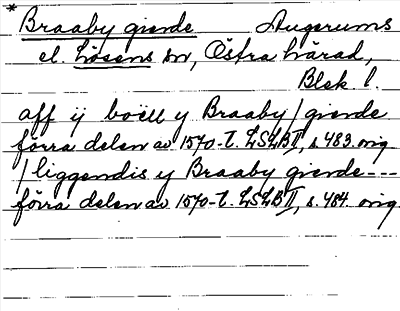 * Braaby giende Augerums
el. Lösens sn, Östra härad,
Blek. l.
aff ij boëll y Braaby / giende
förra delen av 1570-t. LSLB II, s. 483. orig
/ liggendis y Braaby giende ---
förra delen av 1570-t. LSLB II, s. 484. orig